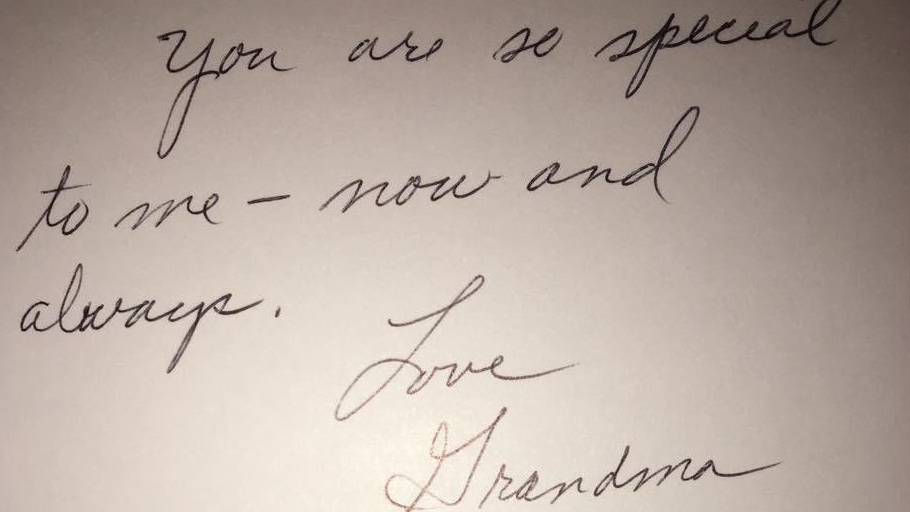 You are so special
to me – now and
always.
Love
Grandma